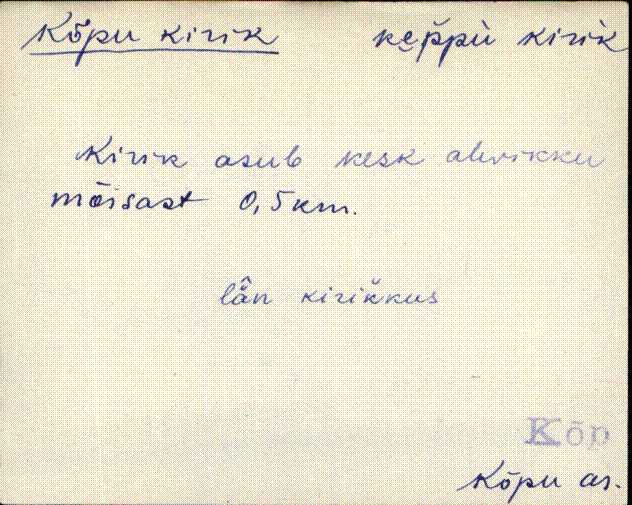 Kõpu kirik   ke̮p̆pù kirìk
Kirik asub kesk alevikku
mõisast 0,5 km.
lân kirik̆kus
Kõp
Kõpu as.